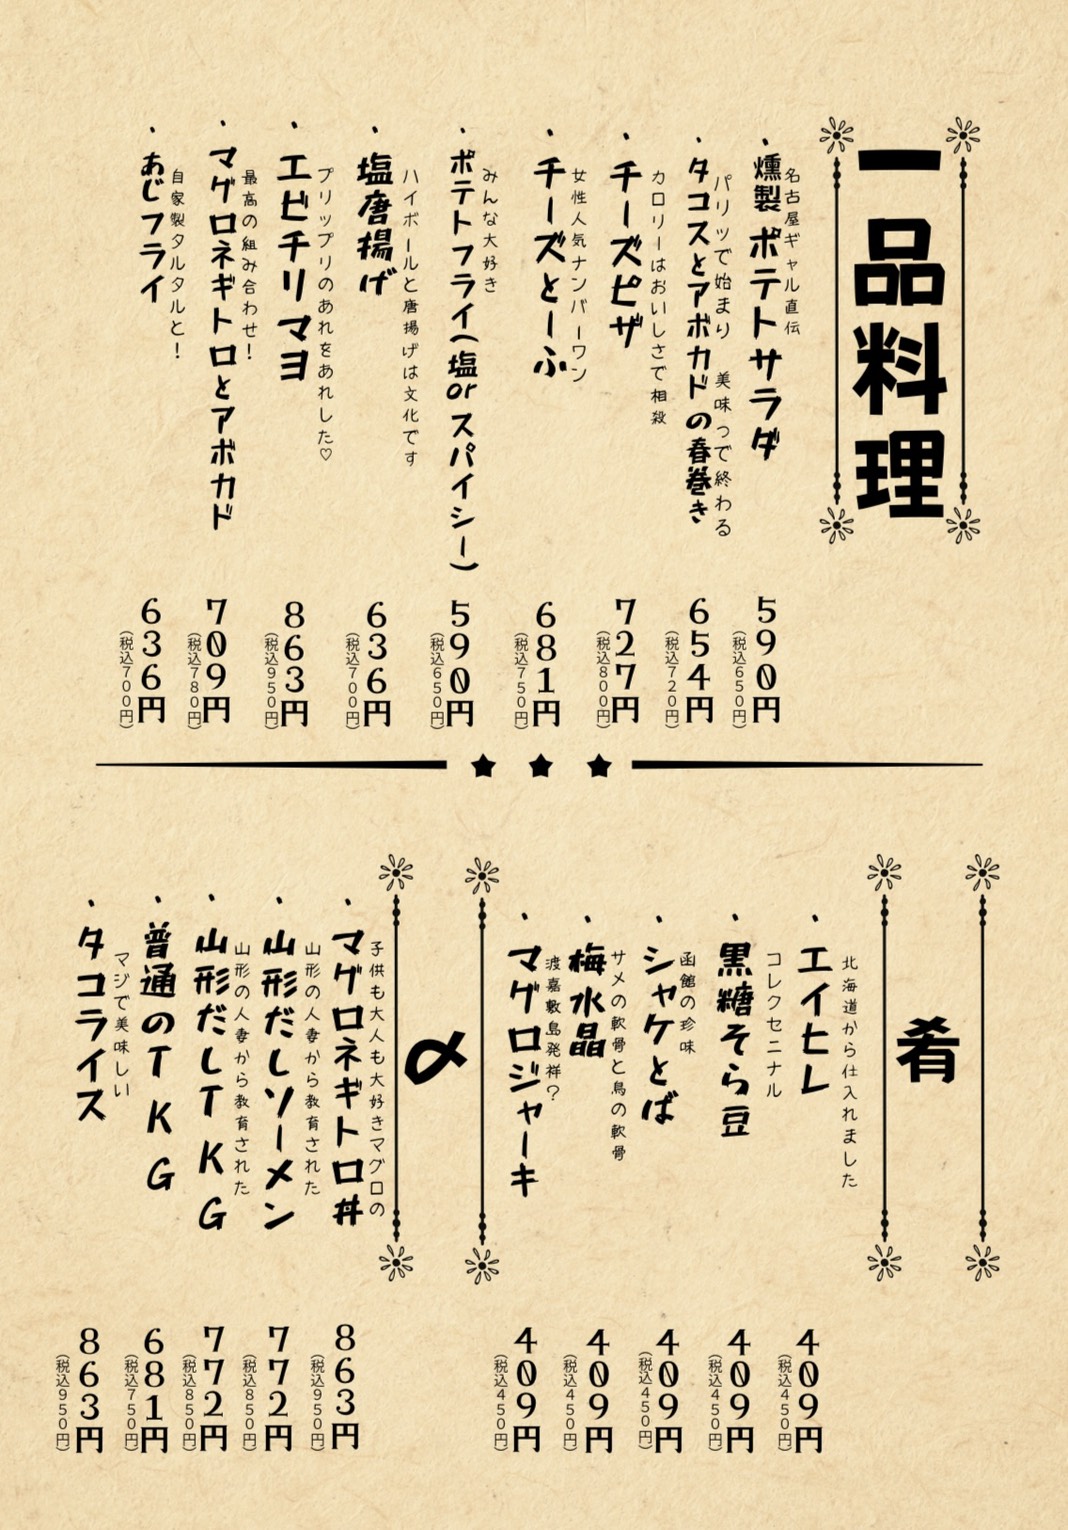 一品料理
名古屋ギャル直伝
・燻製ポテトサラダ
590円
(税込650円)
パリッで始まり 美味っで終わる
・タコスとアボカドの春巻き
654円
(税込720円)
カロリーはおいしさで相殺
・チーズピザ
727円
(税込800円)
女性人気ナンバーワン
・チーズとーふ
681円
(税込750円)
みんな大好き
・ポテトフライ(塩orスパイシー)
590円
(税込650円)
ハイボールと唐揚げは文化です
・塩唐揚げ
636円
(税込700円)
プリップリのあれをあれした♡
・エビチリマヨ
863円
(税込950円)
最高の組み合わせ!
・マグロネギトロとアボカド
709円
(税込780円)
自家製タルタルと!
・あじフライ
636円
(税込700円)
肴
北海道から仕入れました
・エイヒレ
409円
(税込450円)
コレクセニナル
・黒糖そら豆
409円
(税込450円)
函館の珍味
・シャケとば
409円
(税込450円)
サメの軟骨と鳥の軟骨
・梅水晶
409円
(税込450円)
渡嘉敷島発祥?
・マグロジャーキ
409円
(税込450円)
〆
子供も大人も大好きマグロの
・マグロネギトロ丼
863円
(税込950円)
山形の人妻から教育された
・山形だしソーメン
772円
(税込850円)
山形の人妻から教育された
・山形だしTKG
772円
(税込850円)
・普通のTKG
681円
(税込750円)
マジで美味しい
・タコライス
863円
(税込950円)